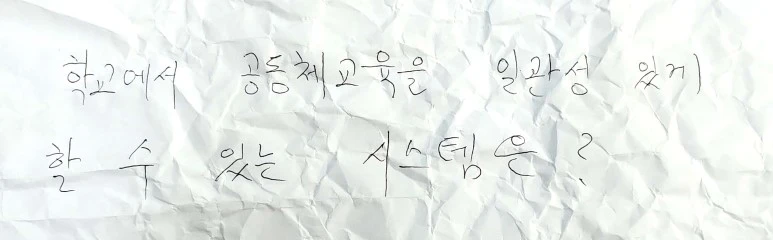 학교에서 공동체교육을 일관성 있게
할 수 있는 시스템은?